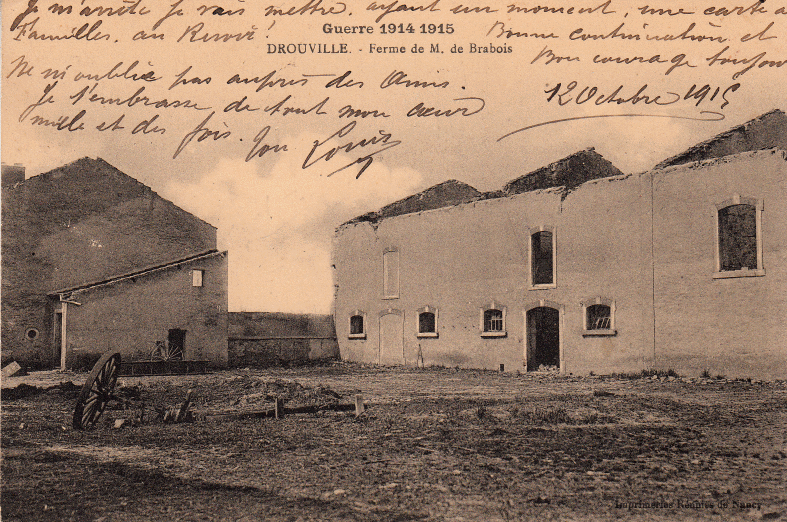 Je m'arrête je vais mettre, ayant un moment, une carte a
familles, au Revoir.
Guerre 1914 1915
Bonne continuation et
DROUVILLE. - Ferme de M. de Brabois
Bon courage toujours
Ne m'oublie pas auprès des Amis.
Je t'embrasse de tout mon cœur
12 Octobre 1915
mille et des fois. Ton Louis
Imprimeries Réunies de Nancy